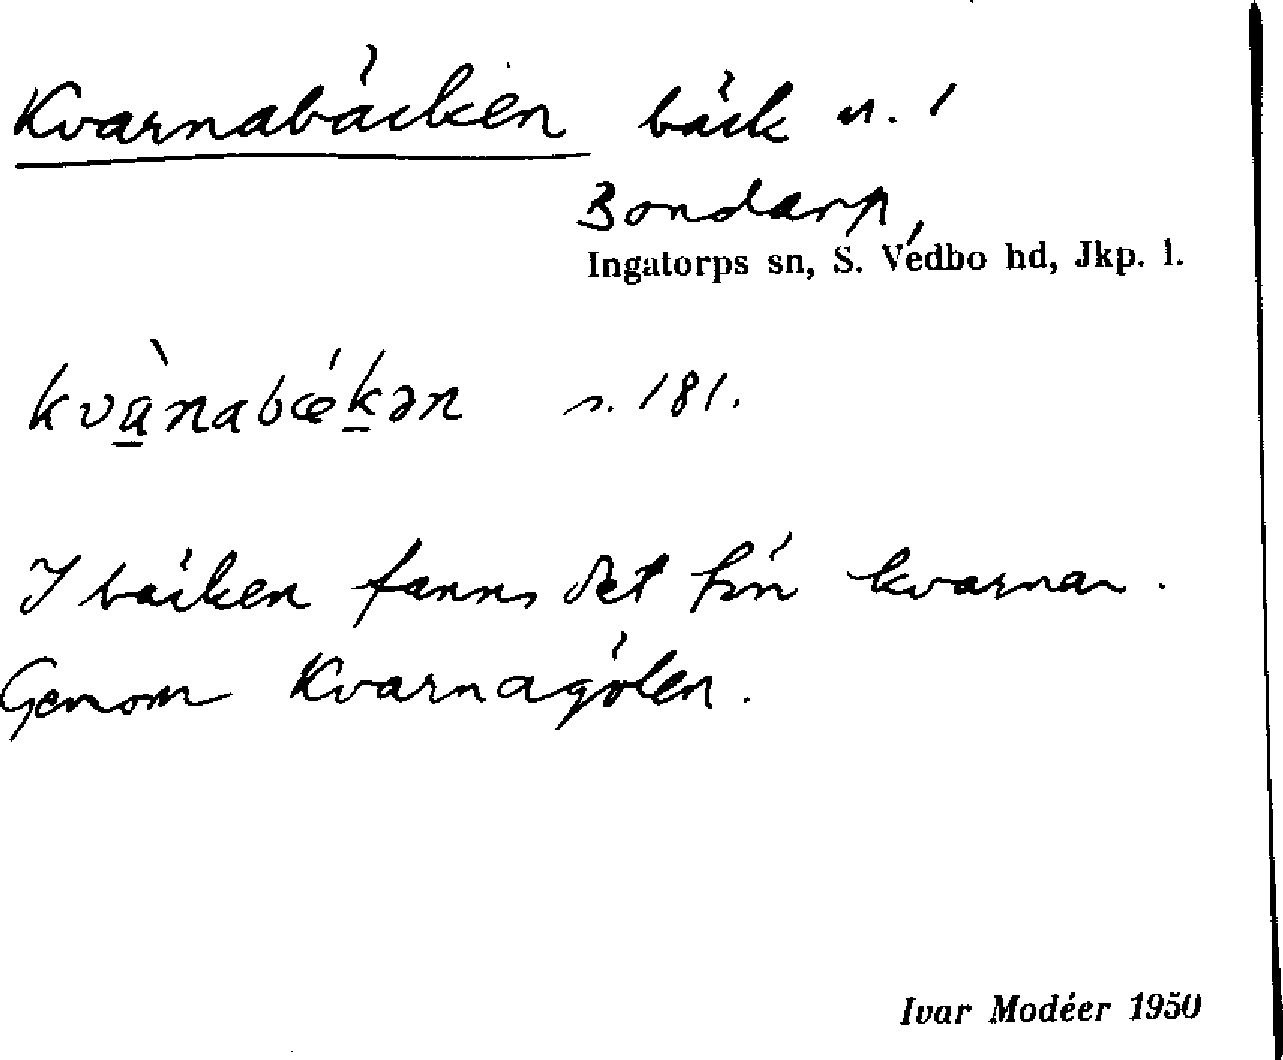 Kvarnabäcken bäck n. 1
Bondarp,
Ingatorps sn, S. Vedbo hd, Jkp. l.
kvànabǽkən s. 181.
I bäcken fanns det förr kvarnar.
Genom Kvarnagölen.
Ivar Modéer 1950